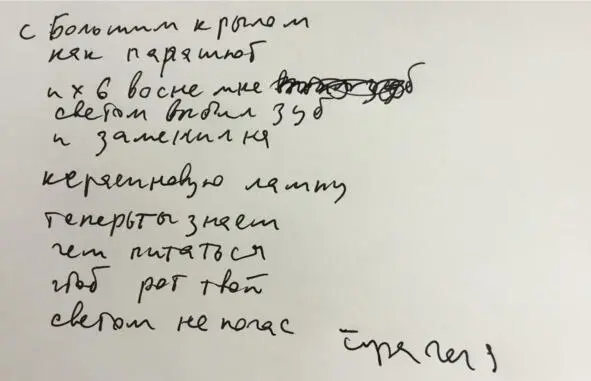 с Большим крылом
как парашют
и х б во сне мне
светом выбил зуб
и заменил на
керасиновую лампу
теперьты знает
чем питаться
чтоб рот твой
светом не погас